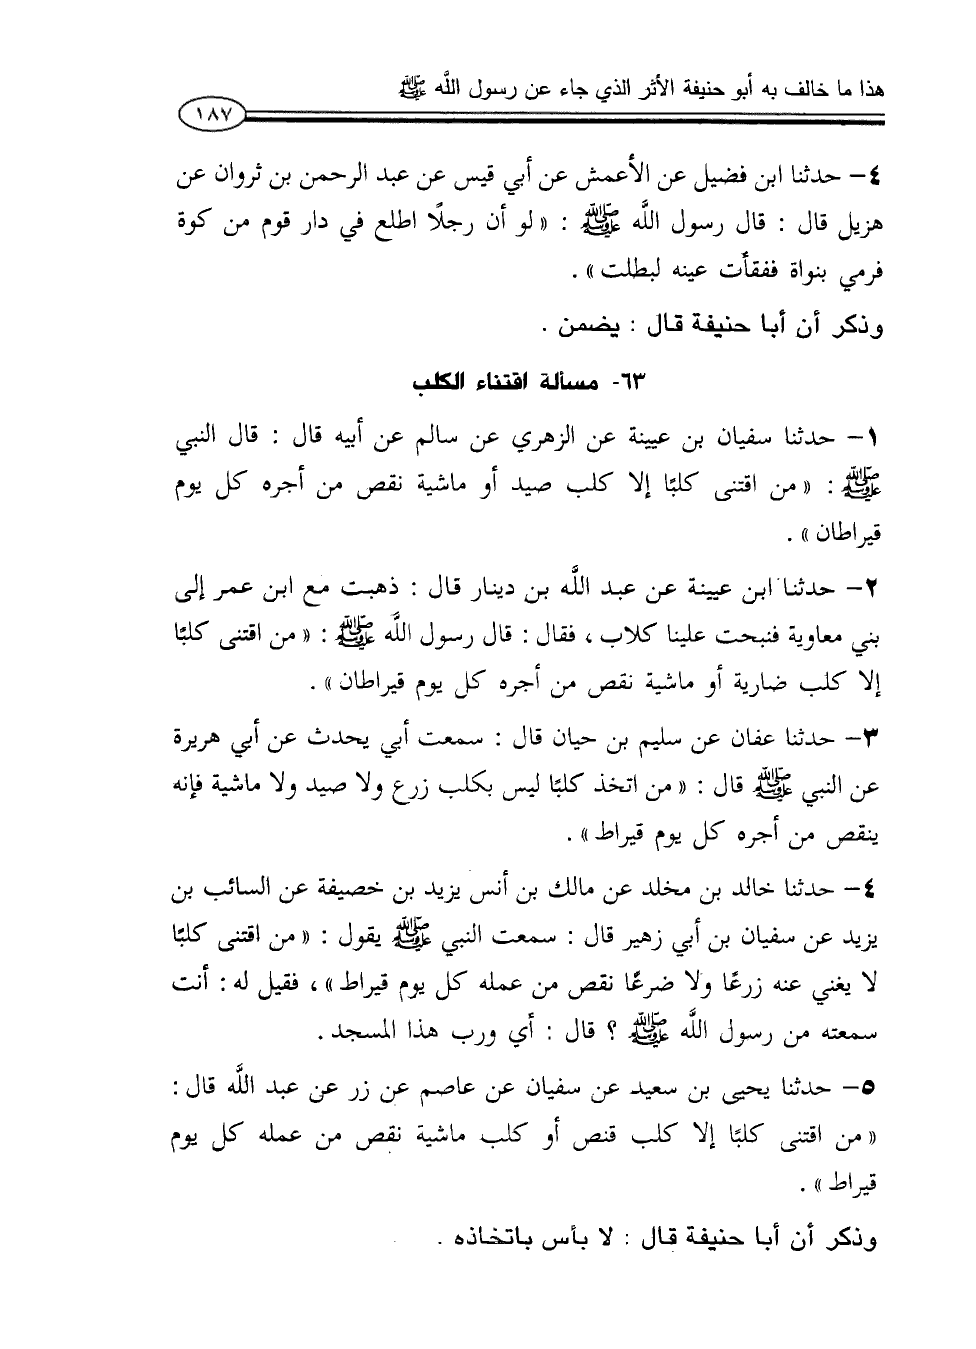 هذا ما خالف به أبو حنيفة الأثر الذي جاء عن رسول اللَّه ﷺ
١٨٧
٤- حدثنا ابن فضيل عن الأعمش عن أبي قيس عن عبد الرحمن بن ثروان عن
هزيل قال : قال رسول اللَّه ﷺ : « لو أن رجلًا اطلع في دار قوم من كوة
فرمي بنواة ففقأت عينه لبطلت» .
وذكر أن أبا حنيفة قال : يضمن .
٦٣- مسألة اقتناء الكلب
١- حدثنا سفيان بن عيينة عن الزهري عن سالم عن أبيه قال : قال النبي
ﷺ : « من اقتنى كلبًا إلا كلب صيد أو ماشية نقص من أجره كل يوم
قيراطان» .
٢- حدثنا ابن عيينة عن عبد اللَّه بن دينار قال : ذهبت مع ابن عمر إلى
بني معاوية فنبحت علينا كلاب ، فقال : قال رسول اللَّه ﷺ : « من اقتنى كلبًا
إلا كلب ضارية أو ماشية نقص من أجره كل يوم قيراطان» .
٣- حدثنا عفان عن سليم بن حيان قال : سمعت أبي يحدث عن أبي هريرة
عن النبي ﷺ قال : « من اتخذ كلبًا ليس بكلب زرع ولا صيد ولا ماشية فإنه
ينقص من أجره كل يوم قيراط» .
٤- حدثنا خالد بن مخلد عن مالك بن أنس يزيد بن خصيفة عن السائب بن
يزيد عن سفيان بن أبي زهير قال : سمعت النبي ﷺ يقول : « من اقتنى كلبًا
لا يغني عنه زرعًا ولا ضرعًا نقص من عمله كل يوم قيراط» ، فقيل له : أنت
سمعته من رسول اللَّه ﷺ ؟ قال : أي ورب هذا المسجد .
٥- حدثنا يحيى بن سعيد عن سفيان عن عاصم عن زر عن عبد اللَّه قال :
« من اقتنى كلبًا إلا كلب قنص أو كلب ماشية نقص من عمله كل يوم
قيراط» .
وذكر أن أبا حنيفة قال : لا بأس باتخاذه .